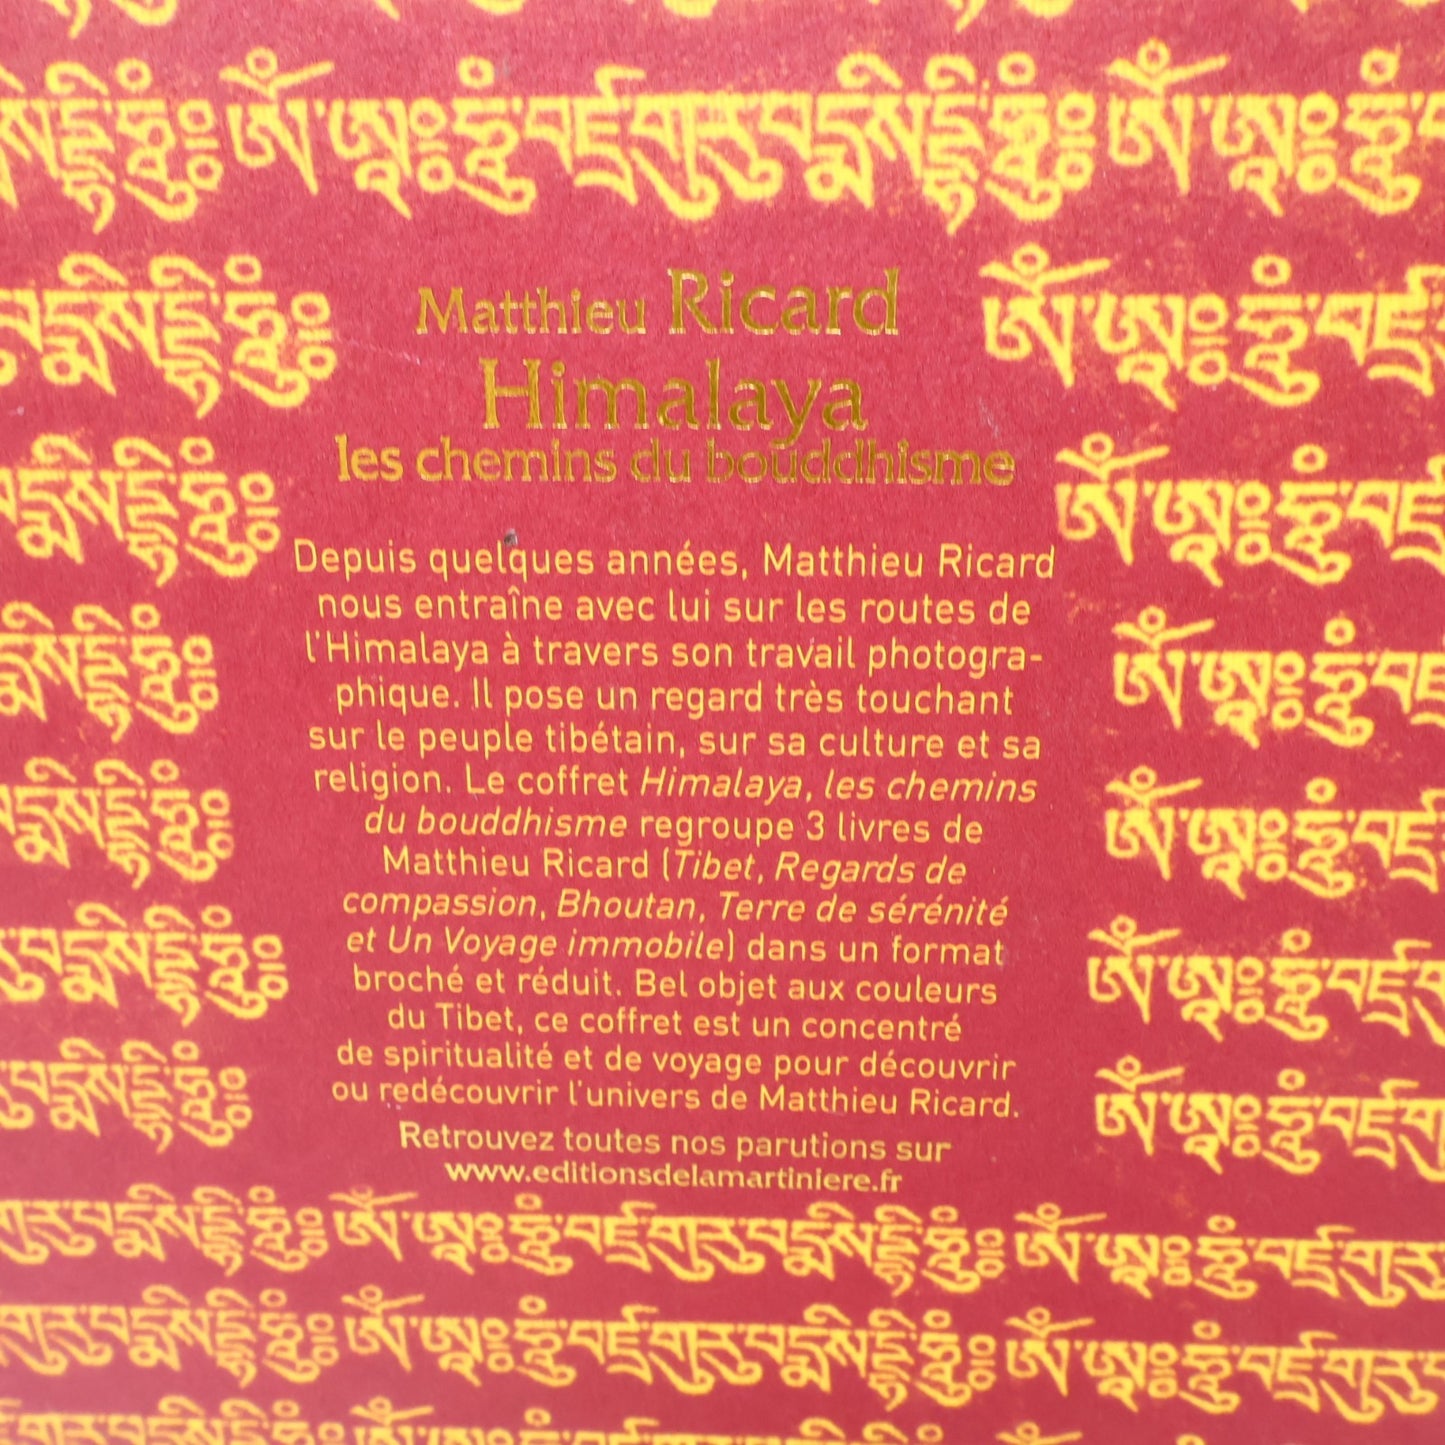 སིདྡྷི་ཧཱུྃ༔ ཨོཾ་ཨཱཿཧཱུྃ་བཛྲ་གུ་རུ་པདྨ་སིདྡྷི་ཧཱུྃ༔ ཨོཾ་ཨཱཿཧཱུྃ
པདྨ་སིདྡྷི་ཧཱུྃ༔ ཨོཾ་ཨཱཿཧཱུྃ་བཛྲ
Matthieu Ricard
Himalaya
les chemins du bouddhisme
པདྨ་སིདྡྷི་ཧཱུྃ༔ ཨོཾ་ཨཱཿཧཱུྃ་བཛྲ
Depuis quelques années, Matthieu Ricard
nous entraîne avec lui sur les routes de
པདྨ་སིདྡྷི་ཧཱུྃ༔ ཨོཾ་ཨཱཿཧཱུྃ་བཛྲ
l'Himalaya à travers son travail photogra-
phique. Il pose un regard très touchant
sur le peuple tibétain, sur sa culture et sa
religion. Le coffret Himalaya, les chemins
པདྨ་སིདྡྷི་ཧཱུྃ༔ ཨོཾ་ཨཱཿཧཱུྃ་བཛྲ
du bouddhisme regroupe 3 livres de
Matthieu Ricard (Tibet, Regards de
compassion, Bhoutan, Terre de sérénité
et Un Voyage immobile) dans un format
པདྨ་སིདྡྷི་ཧཱུྃ༔ ཨོཾ་ཨཱཿཧཱུྃ་བཛྲ
broché et réduit. Bel objet aux couleurs
du Tibet, ce coffret est un concentré
de spiritualité et de voyage pour découvrir
ou redécouvrir l'univers de Matthieu Ricard.
པདྨ་སིདྡྷི་ཧཱུྃ༔ ཨོཾ་ཨཱཿཧཱུྃ་བཛྲ་གུ
Retrouvez toutes nos parutions sur
www.editionsdelamartiniere.fr
གུ་རུ་པདྨ་སིདྡྷི་ཧཱུྃ༔ ཨོཾ་ཨཱཿཧཱུྃ་བཛྲ་གུ་རུ་པདྨ་སིདྡྷི་ཧཱུྃ༔ ཨོཾ་ཨཱཿཧཱུྃ་བཛྲ་གུ་རུ
གུ་རུ་པདྨ་སིདྡྷི་ཧཱུྃ༔ ཨོཾ་ཨཱཿཧཱུྃ་བཛྲ་གུ་རུ་པདྨ་སིདྡྷི་ཧཱུྃ༔ ཨོཾ་ཨཱཿཧཱུྃ་བཛྲ་གུ་རུ